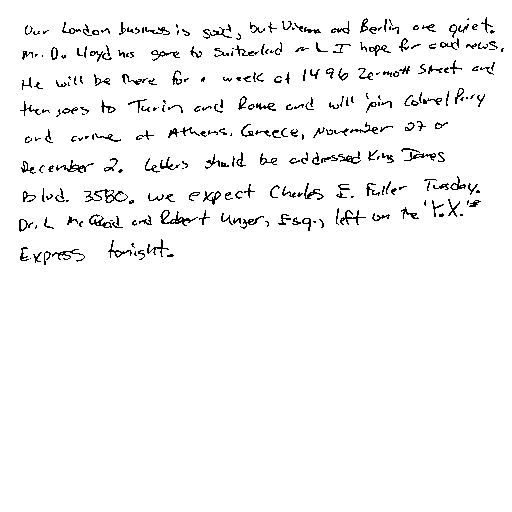 Our London business is good, but Vienna and Berlin are quiet.
Mr. D. Lloyd has gone to Switzerland and I hope for good news.
He will be there for a week at 1496 Zermott Street and
then goes to Turin and Rome and will join Colonel Parry
and arrive at Athens, Greece, November 27 or
December 2. Letters should be addressed King James
Blvd. 3580. We expect Charles E. Fuller Tuesday.
Dr. L McQuaid and Robert Unger, Esq., left on the "Y.X."
Express tonight.